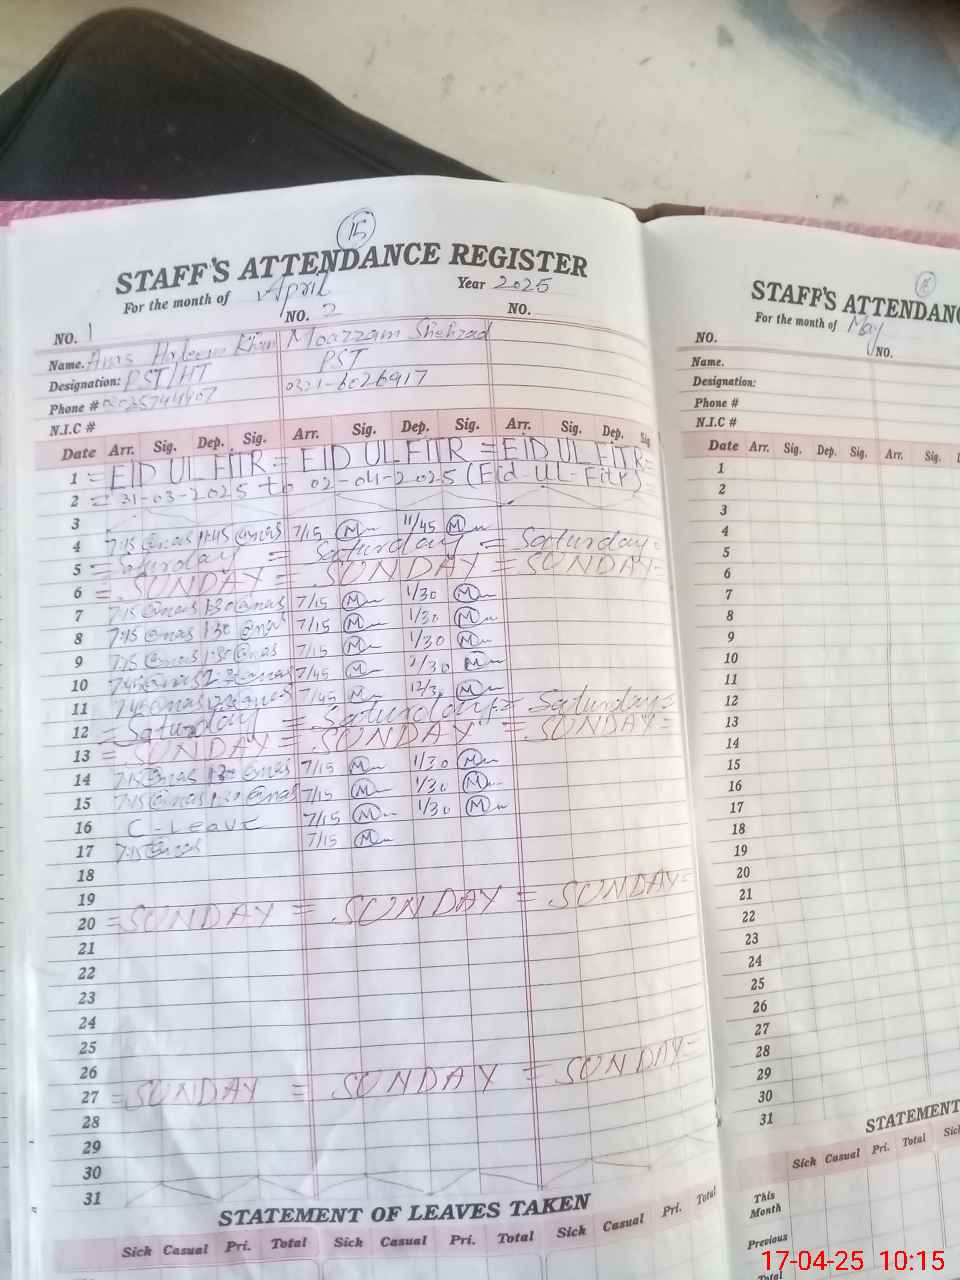 15
STAFF'S ATTENDANCE REGISTER
For the month of April Year 2025
NO. 1 NO. 2 NO.
Name. Anas Haleem Khan Moazzam Shehzad
Designation: PST/HT PST
Phone # 0321-6026917
N.I.C #
Date Arr. Sig. Dep. Sig. Arr. Sig. Dep. Sig. Arr. Sig. Dep. Sig
1 = EID UL FITR = EID UL FITR = EID UL FITR =
2 = 31-03-2025 to 02-04-2025 (Eid-ul-Fitr)
3
4 7:15 @anas 11:45 @anas 7/15 M 11/45 M
5 = Saturday = Saturday = Saturday =
6 = SUNDAY = SUNDAY = SUNDAY =
7 7:15 @anas 1:30 @anas 7/15 M 1/30 M
8 7:15 @anas 1:30 @anas 7/15 M 1/30 M
9 7:15 @anas 1:30 @anas 7/15 M 1/30 M
10 7:45 @anas @anas 7/45 M 2/30 M
11 7:45 @anas @anas 7/45 M 12/30 M
12 = Saturday = Saturday = Saturday =
13 = SUNDAY = SUNDAY = SUNDAY =
14 7:15 @anas 1:30 @anas 7/15 M 1/30 M
15 7:15 @anas 1:30 @anas 7/15 M 1/30 M
16 C-Leave 7/15 M 1/30 M
17 7:15 @anas 7/15 M
18
19
20 = SUNDAY = SUNDAY = SUNDAY =
21
22
23
24
25
26
27 = SUNDAY = SUNDAY = SUNDAY =
28
29
30
31
STATEMENT OF LEAVES TAKEN
Sick Casual Pri. Total Sick Casual Pri. Total Sick Casual Pri. Total
STAFF'S ATTENDANC
For the month of May
NO. NO.
Name.
Designation:
Phone #
N.I.C #
Date Arr. Sig. Dep. Sig. Arr. Sig.
1
2
3
4
5
6
7
8
9
10
11
12
13
14
15
16
17
18
19
20
21
22
23
24
25
26
27
28
29
30
31
STATEMENT
Sick Casual Pri. Total
This
Month
Previous
Total
17-04-25 10:15